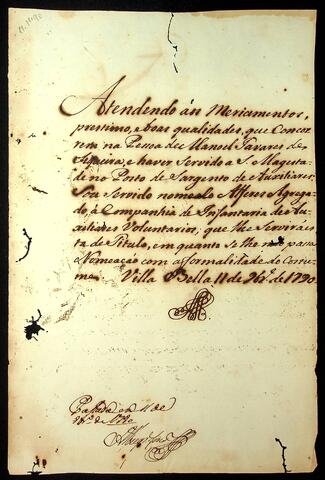 Atendendo áu Merecimentos,
prestimo, e boas qualidades, que Concor
rem na Pessoa de Manoel Tavares de
Siqueira; e haver Servido a S. Magesta
de no Posto de Sargento de Auxiliares
Sou Servido nomealo Alferes Agrega
do à Companhia de Infantaria de Au
xiliares Voluntarios, que lhe Servirá es
ta de Titulo, em quanto se lhe não passa
Nomeação com a formalidade do Costu-
me. Villa Bella 11 de 9br.º de 1790.
Passada em 11 de
9br.º de 1790